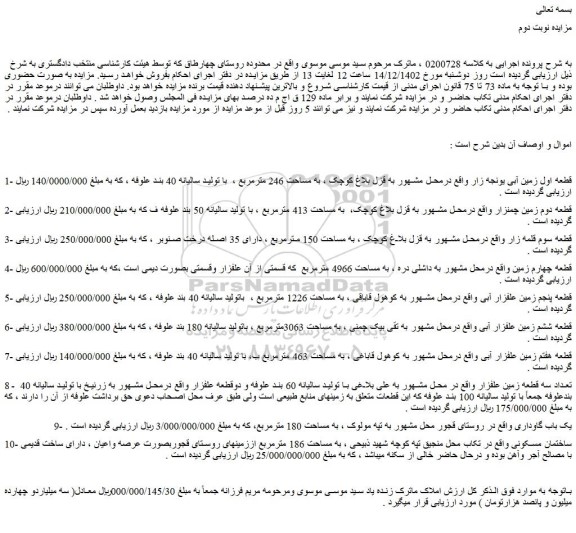 بسمه تعالی
مزایده نوبت دوم
به شرح پرونده اجرایی به کلاسه 0200728 ، ماترک مرحوم سید موسی موسوی واقع در محدوده روستای چهارطاق که توسط هیئت کارشناسی منتخب دادگستری به شرح
ذیل ارزیابی گردیده است روز دوشنبه مورخ 14/12/1402 ساعت 12 لغایت 13 از طریق مزایده در دفتر اجرای احکام بفروش خواهد رسید. مزایده به صورت حضوری
بوده و با توجه به ماده 73 تا 75 قانون اجرای مدنی از قیمت کارشناسی شروع و بالاترین پیشنهاد دهنده قیمت برنده مزایده خواهد بود. داوطلبان می توانند درموعد مقرر در
دفتر اجرای احکام مدنی تکاب حاضر و در مزایده شرکت نمایند و برابر ماده 129 ق اج م ده درصد بهای مزایده فی المجلس وصول خواهد شد . داوطلبان درموعد مقرر در
دفتر اجرای احکام مدنی تکاب حاضر و در مزایده شرکت نمایند و نیز می توانند 5 روز قبل از موعد مزایده از مورد مزایده بازدید بعمل آورده سپس در مزایده شرکت نمایند .
اموال و اوصاف آن بدین شرح است :
قطعه اول زمین آبی یونجه زار واقع درمحل مشهور به قزل بلاغ کوچک ، به مساحت 246 مترمربع ، با تولید سالیانه 40 بند علوفه ، که به مبلغ 140/0000/000 ریال -1
ارزیابی گردیده است .
قطعه دوم زمین چمنزار واقع درمحل مشهور به قزل بلاغ کوچک، به مساحت 413 مترمربع ، با تولید سالیانه 50 بند علوفه ف که به مبلغ 210/000/000 ریال ارزیابی -2
گردیده است .
قطعه سوم قلمه زار واقع درمحل مشهور به قزل بلاغ کوچک ، به مساحت 150 مترمربع ، دارای 35 اصله درخت صنوبر ، که به مبلغ 250/000/000 ریال ارزیابی -3
گردیده است .
قطعه چهارم زمین واقع درمحل مشهور به داشلی دره ، به مساحت 4966 مترمربع که قسمتی از آن علفزار وقسمتی بصورت دیمی است ،که به مبلغ 600/000/000 ریال -4
ارزیابی گردیده است .
قطعه پنجم زمین علفزار آبی واقع درمحل مشهور به کوهول قباقی ، به مساحت 1226 مترمربع ، باتولید سالیانه 40 بند علوفه ، که به مبلغ 250/000/000 ریال ارزیابی -5
گردیده است .
قطعه ششم زمین علفزار آبی واقع درمحل مشهور به تقی بیک چمنی ، به مساحت 3063مترمربع ، باتولید سالیانه 180 بند علوفه ، که به مبلغ 380/000/000 ریال ارزیابی -6
گردیده است .
قطعه هفتم زمین علفزار آبی واقع درمحل مشهور به کوهول قاباغی ، به مساحت 463 مترمربع ب، با تولید سالیانه 40 بند علوفه ، که به مبلغ 140/000/000 ریال ارزیابی -7
گردیده است .
تعداد سه قطعه زمین علفزار واقع در محل مشهور به علی بلاغی با تولید سالیانه 60 بند علوفه و دوقطعه علفزار واقع درمحل مشهور به زرنیخ با تولید سالیانه 40 -8
بندعلوفه جمعاً با تولید سالیانه 100 بند علوفه که این قطعات متعلق به زمینهای منابع طبیعی است ولی طبق عرف محل اصحاب دعوی حق برداشت علوفه از آن را دارند ، که
به مبلغ 175/000/000 ریال ارزیابی گردیده است .
یک باب گاوداری واقع در روستای قجور محل مشهور به تپه مولوک ، به مساحت 180 مترمربع، که به مبلغ 3/000/000/000 ریال ارزیابی گردیده است . -9
ساختمان مسکونی واقع در تکاب محل منجیق تپه کوچه شهید ذبیحی ، به مساحت 186 مترمربع اززمینهای روستای قجوربصورت عرصه واعیان ، دارای ساخت قدیمی -10
با مصالح آجر وآهن بوده و درحال حاضر خالی از سکنه میباشد ، که به مبلغ 25/000/000/000 ریال ارزیابی گردیده است .
باتوجه به موارد فوق الذکر کل ارزش املاک ماترک زنده یاد سید موسی موسوی ومرحومه مریم فرزانه جمعاً به مبلغ 000/000/145/30ریال معادل( سه میلیاردو چهارده
میلیون و پانصد هزارتومان ) مورد ارزیابی قرار میگیرد .
ParsNamadData
۰۲۱-۸۸۳۴۹۶۷۰-۵